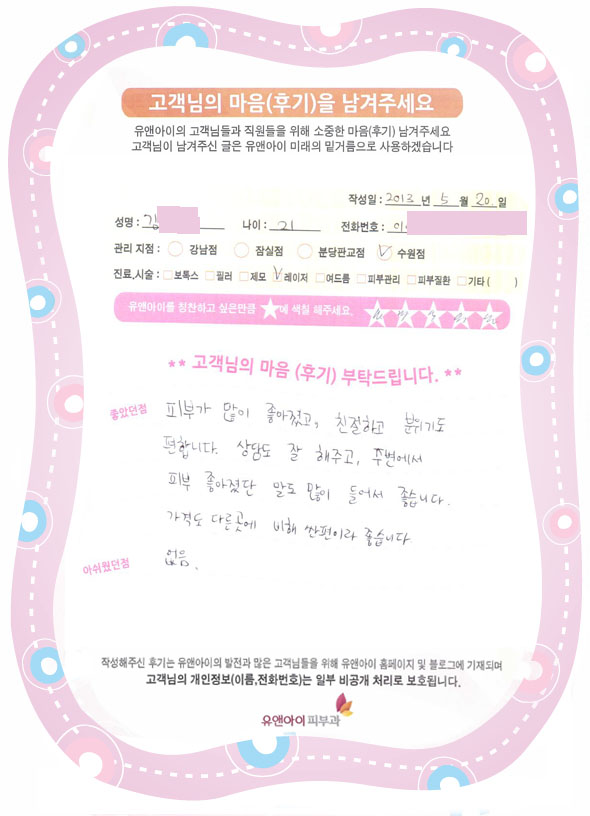 고객님의 마음(후기)을 남겨주세요
유앤아이의 고객님들과 직원들을 위해 소중한 마음(후기) 남겨주세요
고객님이 남겨주신 글은 유앤아이 미래의 밑거름으로 사용하겠습니다
작성일 : 2013 년 5 월 20 일
성명 : 김 나이 : 21 전화번호 :
관리 지점 : 강남점 잠실점 분당판교점 수원점
진료,시술 : 보톡스 필러 제모 레이저 여드름 피부관리 피부질환 기타 ( )
유앤아이를 칭찬하고 싶은만큼 ★에 색칠 해주세요.
** 고객님의 마음 (후기) 부탁드립니다. **
좋았던점 피부가 많이 좋아졌고, 친절하고 분위기도
편합니다. 상담도 잘 해주고, 주변에서
피부 좋아졌단 말도 많이 들어서 좋습니다.
가격도 다른곳에 비해 싼편이라 좋습니다
아쉬웠던점 없음.
작성해주신 후기는 유앤아이의 발전과 많은 고객님들을 위해 유앤아이 홈페이지 및 블로그에 기재되며
고객님의 개인정보(이름,전화번호)는 일부 비공개 처리로 보호됩니다.
유앤아이피부과